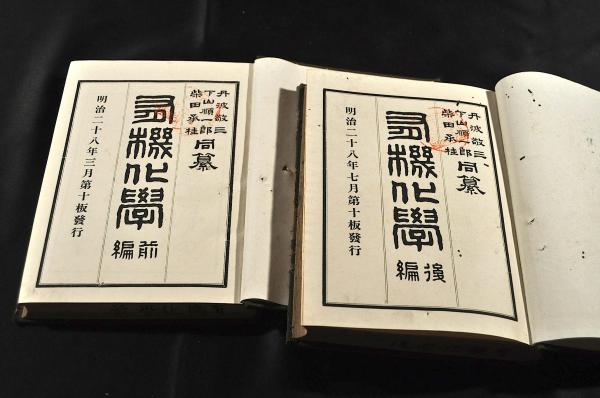 丹波敬三
下山順一郎
柴田承桂
同纂
有機化學
前編
明治二十八年三月第十板發行
丹波敬三
下山順一郎
柴田承桂
同纂
有機化學
後編
明治二十八年七月第十板發行